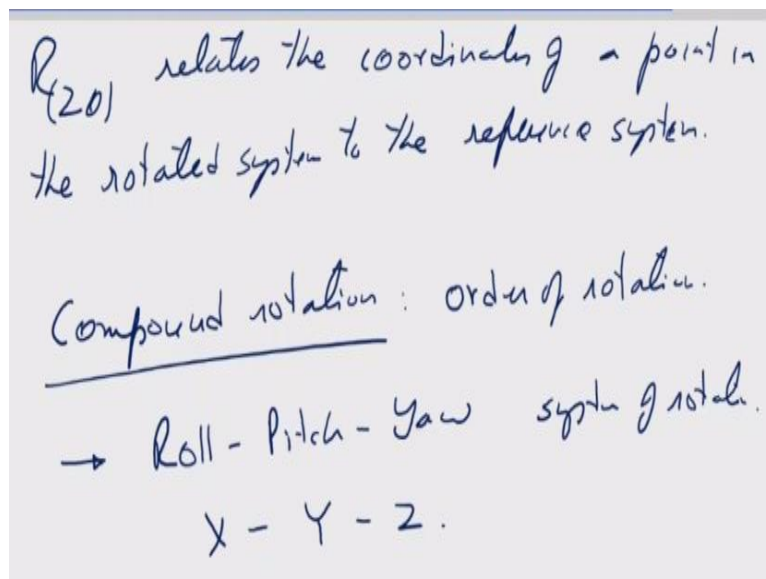 R(20) relates the coordinates of a point in
the rotated system to the reference system.
Compound rotation : order of rotation.
→ Roll - Pitch - Yaw system of rotatn.
X - Y - Z.